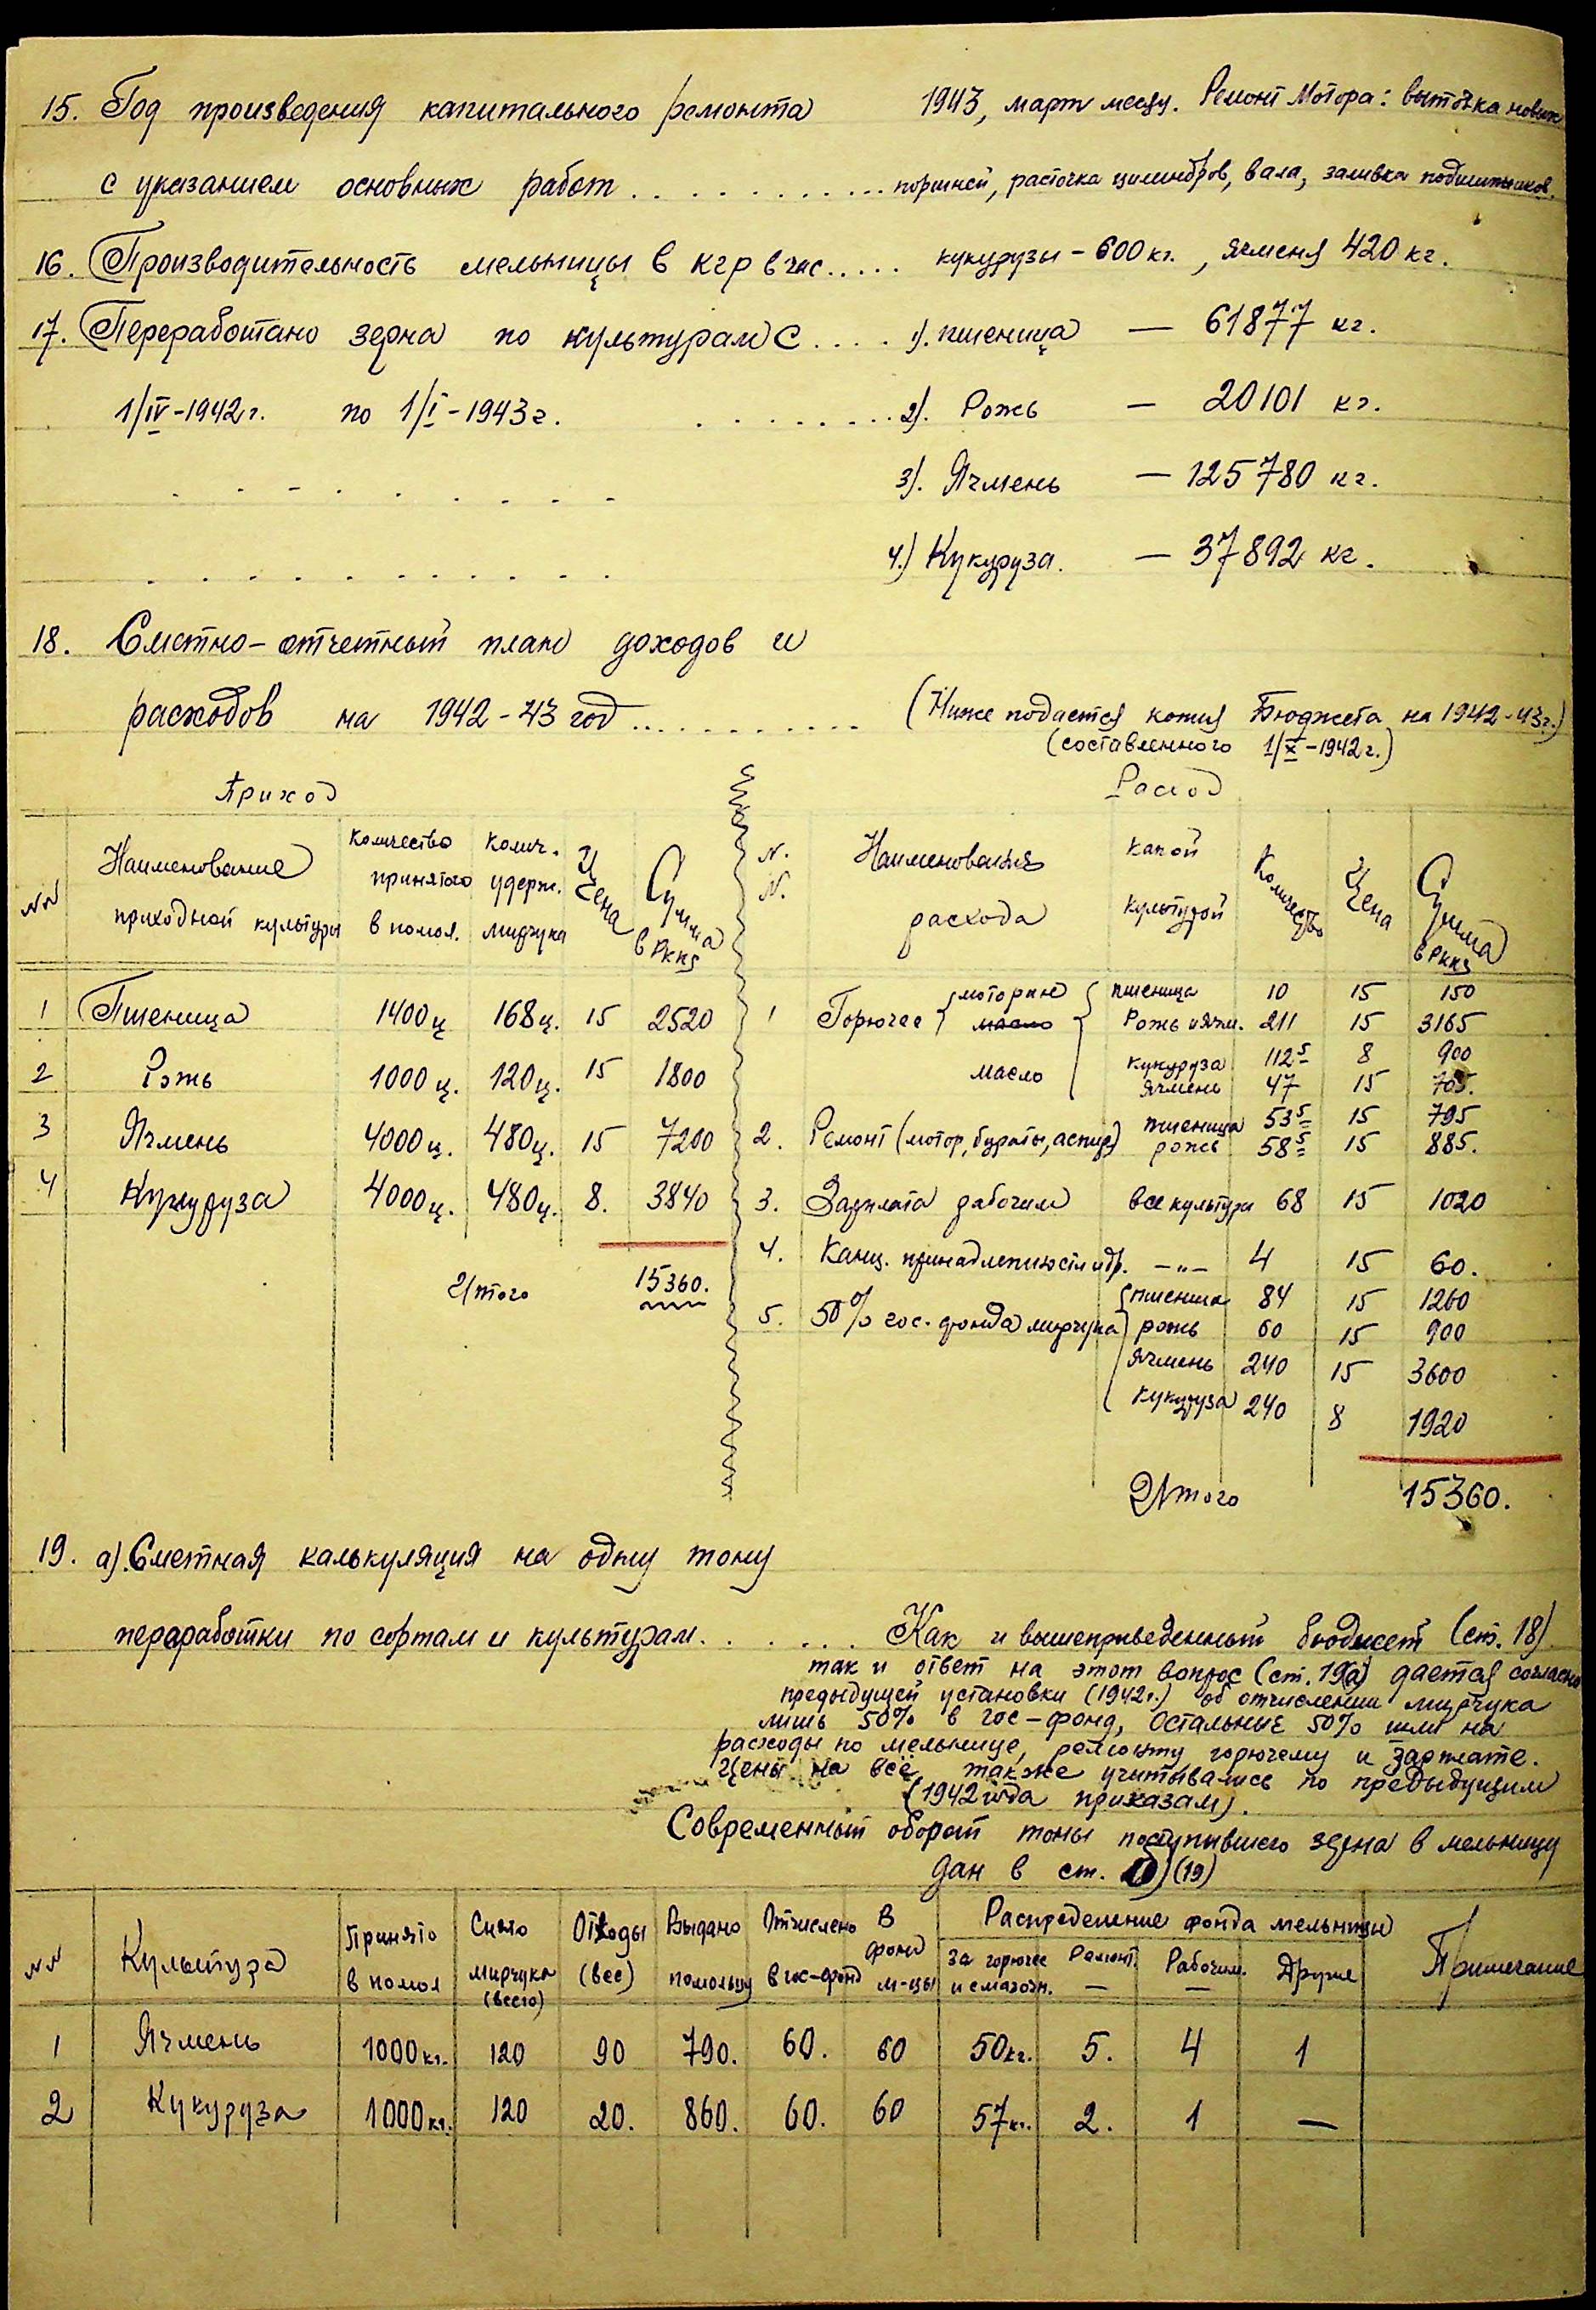 15. Год произведения капитального ремонта 1943, март месяц. Ремонт Мотора: выточка новых
с указанием основных работ . . . . . . . . . . . . поршней, расточка цилиндров, вала, заливка подшипников.
16. Производительность мельницы в кгр в час..... кукурузы - 600 кг., ячменя 420 кг.
17. Переработано зерна по культурам с . . . . 1). пшеница — 61877 кг.
1/IV-1942 г. по 1/I-1943 г. . . . . . . . . 2). Рожь — 20101 кг.
. . . . . . . . . . . 3). Ячмень — 125780 кг.
. . . . . . . . . . . . 4.) Кукуруза. — 37892 кг.
18. Сметно-отчетный план доходов и
расходов на 1942-43 год . . . . . . . . . . . (Ниже подается копия Бюджета на 1942-43 г.)
(составленного 1/X-1942 г.)
Приход
NN Наименование приходной культуры Количество принятого в помол. Колич. удерж. мирчука Цена Сумма в Рккя
1 Пшеница 1400 ц 168 ц. 15 2520
2 Рожь 1000 ц. 120 ц. 15 1800
3 Ячмень 4000 ц. 480 ц. 15 7200
4 Кукуруза 4000 ц. 480 ц. 8. 3840
Итого 15360.
Расход
N. N. Наименования расхода какой культурой Количество Цена Сумма в Рккя
1 Горючее { моторин { пшеница 10 15 150
масло Рожь и ячм. 211 15 3165
масло кукуруза 112 5 8 900
ячмень 47 15 705.
2. Ремонт (мотор, бураты, аспир) пшеница 53 5 15 795
рожь 58 5 15 885.
3. Зарплата рабочим все культуры 68 15 1020
4. Канц. принадлежности др. -"- 4 15 60.
5. 50% гос. фонда мирчука { пшеница 84 15 1260
рожь 60 15 900
ячмень 240 15 3600
кукуруза 240 8 1920
Итого 15360.
19. а). Сметная калькуляция на одну тону
переработки по сортам и культурам. . . . . . Как и вышеприведенный бюджет (ст. 18)
так и ответ на этот вопрос (ст. 19(а) дается согласно
предыдущей установки (1942 г.) об отчислении мирчука
лишь 50% в гос-фонд, Остальные 50% шли на
расходы по мельнице, ремонту горючему и зарплате.
Цены на всё также учитывались по предыдущим
(1942 года приказам).
Современный оборот тоны поступившего зерна в мельницу
дан в ст. (19)
NN Культура Принято в помол Снято мирчука (всего) Отходы (все) Выдано помольцу Отчислено в гос-фонд В фонд м-цы Распределение фонда мельницы Примечание
за горючее и смазочн. Ремонт. — Рабочим. — Другие
1 Ячмень 1000 кг. 120 90 790. 60. 60 50 кг. 5. 4 1
2 Кукуруза 1000 кг. 120 20. 860. 60. 60 57 кг. 2. 1 —